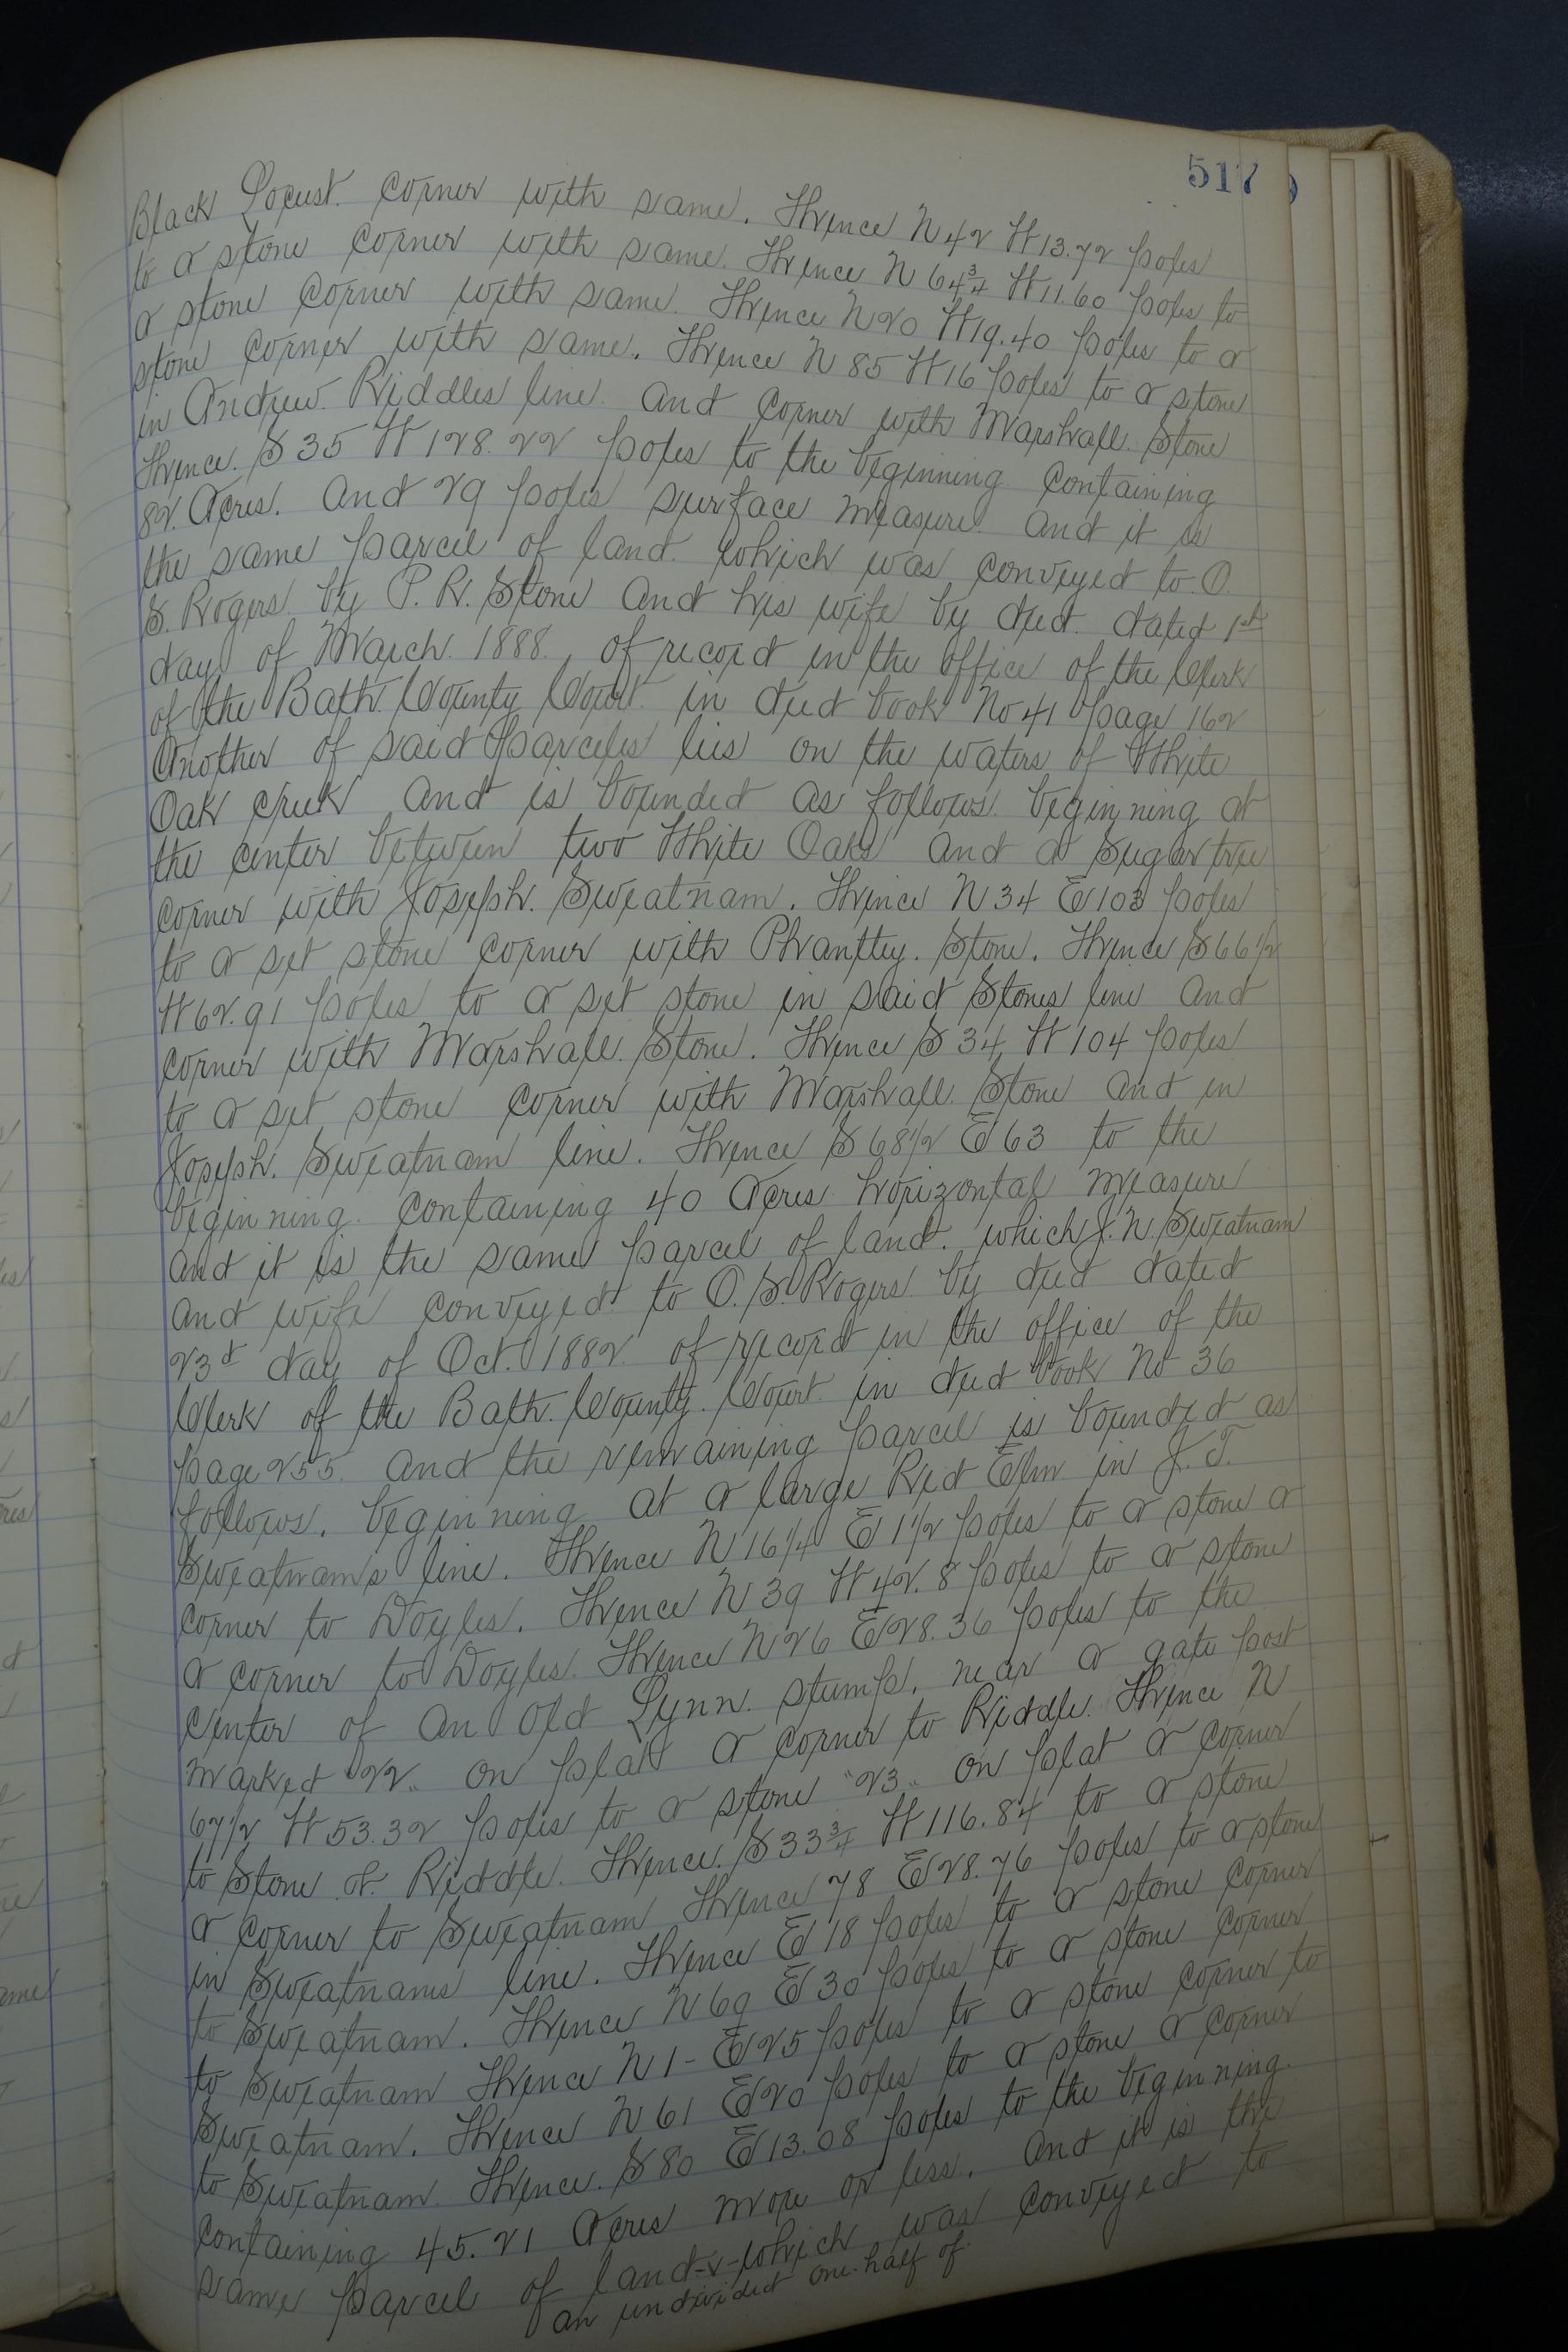 517
Black Locust. Corner with same. Thence N 42 W 13.72 poles
to a stone corner with same. Thence N 64 3/4 W 11.60 poles to
a stone corner with same. Thence N 20 W 19.40 poles to a
stone corner with same. Thence N 85 W 16 poles to a stone
in Andrew Riddles line. and corner with Marshall Stone
Thence. S 35 W 128.22 poles to the beginning containing
82 Acres. and 29 poles surface measure. and it is
the same parcel of land. which was conveyed to O.
S. Rogers by P. R. Stone and his wife by deed. dated 1st
day of March. 1888., of record in the office of the Clerk
of the Bath County Court. in deed book No 41 page 162
Another of said parceles lies on the waters of White
Oak creek and is bounded as follows. beginning at
the center between two White Oaks and a Sugar tree
corner with Joseph. Sweatnam. Thence N 34 E 103 poles
to a set stone corner with Phantley. Stone. Thence S 66 1/2
W 62.91 poles to a set stone in said Stones line and
corner with Marshall. Stone. Thence S 34, W 104 poles
to a set stone corner with Marshall. Stone and in
Joseph. Sweatnam line. Thence S 68 1/2 E 63 to the
beginning. containing 40 Acres horizontal measure
and it is the same parcel of land. which J. N. Sweatnam
and wife conveyed to O. S. Rogers by deed dated
23d day of Oct. 1882 of record in the office of the
Clerk of the Bath. County. Court. in deed book No 36
page 255. and the remaining parcel is bounded as
follows. beginning at a large Red Elm in J. T.
Sweatnam's line. Thence N 16 1/4 E 1 1/2 poles to a stone a
corner to Doyles. Thence N 39 W 42.8 poles to a stone
a corner to Doyles. Thence N 26 E 28.36 poles to the
center of an old Lynn. stump, near a gate post
marked "22" on plat a corner to Riddle. Thence N
67 1/2 W 53.32 poles to a stone "23" on plat a corner
to Stone & Riddle. Thence. S 33 3/4 W 116.84 to a stone
a corner to Sweatnam Thence 78 E 28.76 poles to a stone
in Sweatnams line. Thence E 18 poles to a stone corner
to Sweatnam. Thence N 69 E 30 poles to a stone corner
to Sweatnam Thence N 1- E 25 poles to a stone corner to
Sweatnam. Thence N 61 E 20 poles to a stone a corner
to Sweatnam. Thence. S 80 E 13.08 poles to the beginning.
containing 45.21 Acres more or less. and it is the
same parcel of land-v-which was conveyed to
an undivided one-half of